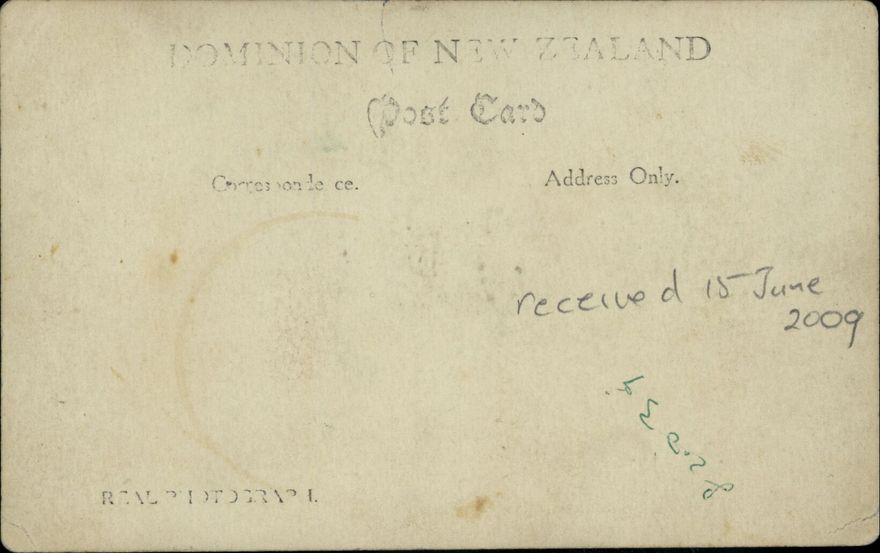 DOMINION OF NEW ZEALAND
Post Card
Correspondence.
Address Only.
received 15 June
2009
REAL PHOTOGRAPH.